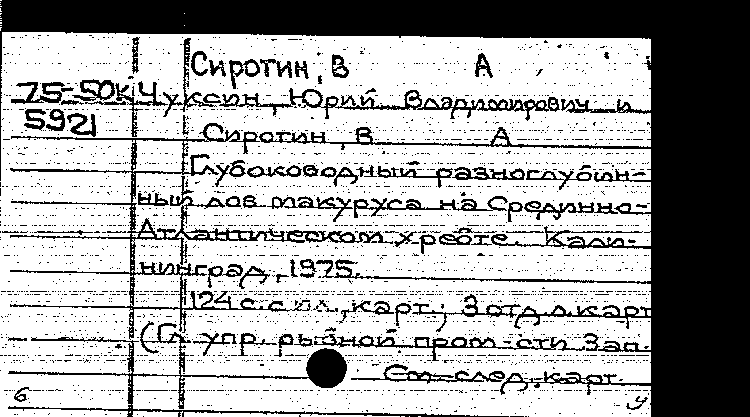 Сиротин, В А
75-50к Чуксин, Юрий Владимирович и
5921 Сиротин, В А.
Глубоководный разноглубин-
ный лов макуруса на Срединно-
Атлантическом хребте. Кали-
нинград, 1975.
124 с. с ил., карт.; 3 отд. л. карт
(Гл. упр. рыбной пром-сти Зап.
См. след. карт.
б у